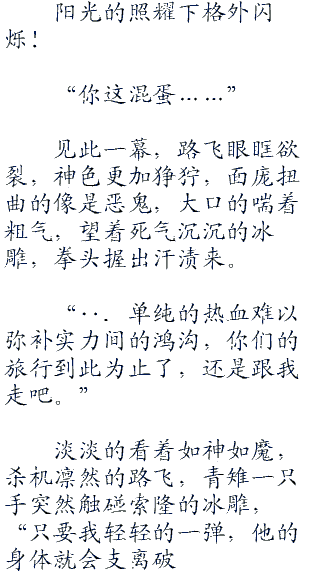 阳光的照耀下格外闪
烁！
“你这混蛋……”
见此一幕，路飞眼眶欲
裂，神色更加狰狞，面庞扭
曲的像是恶鬼，大口的喘着
粗气，望着死气沉沉的冰
雕，拳头握出汗渍来。
“··．单纯的热血难以
弥补实力间的鸿沟，你们的
旅行到此为止了，还是跟我
走吧。”
淡淡的看着如神如魔，
杀机凛然的路飞，青雉一只
手突然触碰索隆的冰雕，
“只要我轻轻的一弹，他的
身体就会支离破